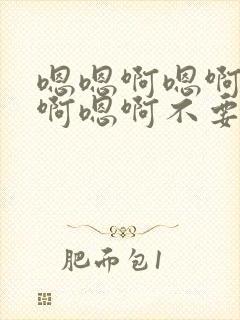 嗯嗯啊嗯啊
啊嗯啊不要
肥而包1